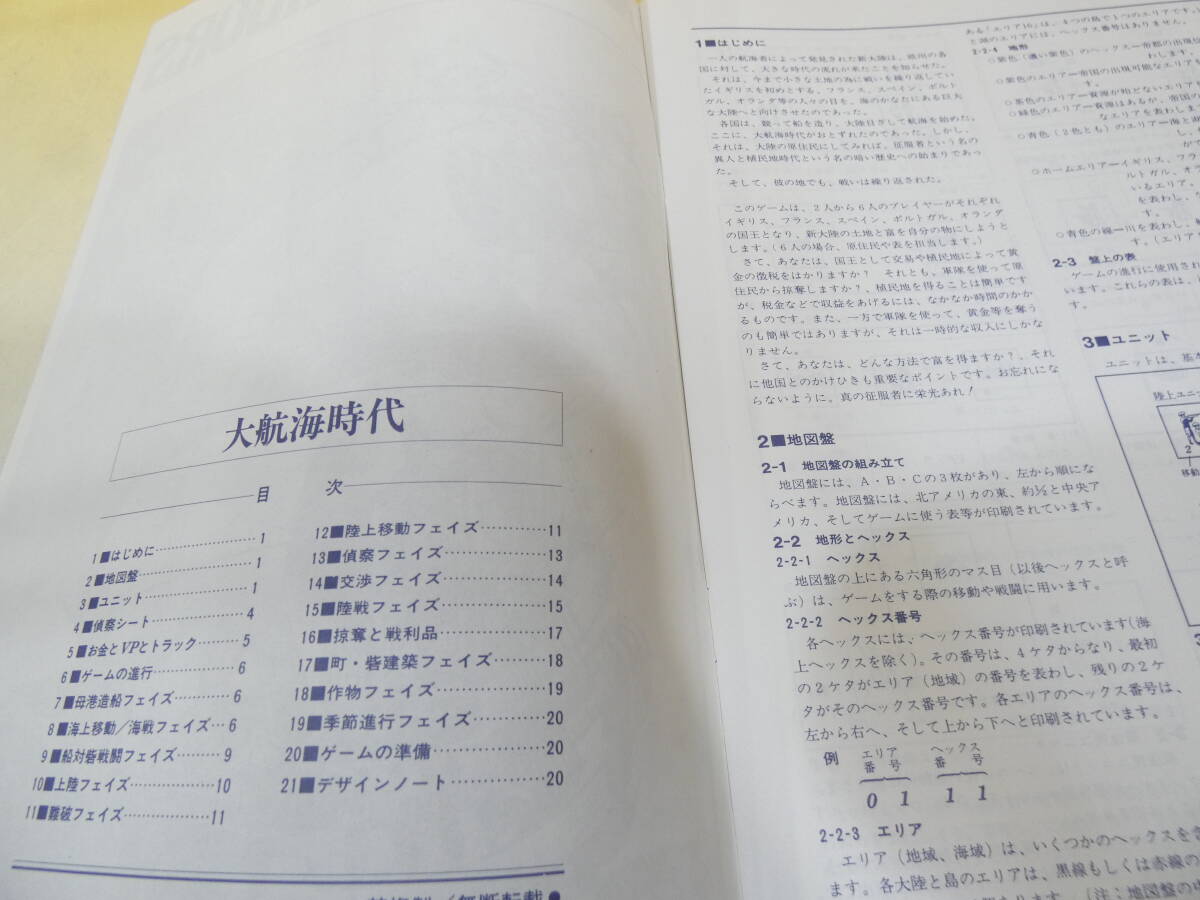 大航海時代
目次
1■はじめに…………………1
2■地図盤……………………1
3■ユニット…………………1
4■偵察シート………………4
5■お金とVPとトラック………5
6■ゲームの進行……………6
7■母港造船フェイズ………6
8■海上移動/海戦フェイズ…6
9■船対砦戦闘フェイズ………9
10■上陸フェイズ……………10
11■難破フェイズ……………11
12■陸上移動フェイズ…………11
13■偵察フェイズ………………13
14■交渉フェイズ………………14
15■陸戦フェイズ………………15
16■掠奪と戦利品………………17
17■町・砦建築フェイズ………18
18■作物フェイズ………………19
19■季節進行フェイズ…………20
20■ゲームの準備………………20
21■デザインノート……………20
1■はじめに
一人の航海者によって発見された新大陸は、欧州の各
国に対して、大きな時代の流れが来たことを知らせた。
それは、今まで小さな土地の為に戦いを繰り返してい
たイギリスを初めとする、フランス、スペイン、ポルト
ガル、オランダ等の人々の目を、海のかなたにある巨大
な大陸へと向けさせたのであった。
各国は、競って船を造り、大陸目ざして航海を始めた。
ここに、大航海時代がおとずれたのであった。しかし、
それは、大陸の原住民にしてみれば、征服者という名の
異人と植民地時代という名の暗い歴史への始まりであっ
た。
そして、彼の地でも、戦いは繰り返された。
このゲームは、2人から6人のプレイヤーがそれぞれ
イギリス、フランス、スペイン、ポルトガル、オランダ
の国王となり、新大陸の土地と富を自分の物にしようと
します。(6人の場合、原住民や表を担当します。)
さて、あなたは、国王として交易や植民地によって黄
金の徴税をはかりますか? それとも、軍隊を使って原
住民から掠奪しますか?、植民地を得ることは簡単です
が、税金などで収益をあげるには、なかなか時間のかか
るものです。また、一方で軍隊を使って、黄金等を奪う
のも簡単ではありますが、それは一時的な収入にしかな
りません。
さて、あなたは、どんな方法で富を得ますか?、それ
に他国とのかけひきも重要なポイントです。お忘れにな
らないように。真の征服者に栄光あれ!
2■地図盤
2-1 地図盤の組み立て
地図盤には、A・B・Cの3枚があり、左から順にな
らべます。地図盤には、北アメリカの東、約½と中央ア
メリカ、そしてゲームに使う表等が印刷されています。
2-2 地形とヘックス
2-2-1 ヘックス
地図盤の上にある六角形のマス目(以後ヘックスと呼
ぶ)は、ゲームをする際の移動や戦闘に用います。
2-2-2 ヘックス番号
各ヘックスには、ヘックス番号が印刷されています(海
上ヘックスを除く)。その番号は、4ケタからなり、最初
の2ケタがエリア(地域)の番号を表わし、残りの2ケ
タがそのヘックス番号です。各エリアのヘックス番号は、
左から右へ、そして上から下へと印刷されています。
例 エリア番号 ヘックス番号
0 1 1 1
2-2-3 エリア
エリア(地域、海域)は、いくつかのヘックスを
ます。各大陸と島のエリアは、黒線もしくは赤線の
ある「エリア16」は、4つの島で1つのエリアです。
と湖のエリアには、ヘックス番号はありません。
2-2-4 地形
○紫色(濃い紫色)のヘックス―帝都の出現
わします。
○紫色のエリア―帝国の出現可能なエリアを
す。
○茶色のエリア―資源が殆どないエリア
○緑色のエリア―資源はあるが、帝国の
なエリアを表わしま
○青色(2色とも)のエリア―海と
○ホームエリア―イギリス、フラ
ルトガル、オラ
いるエリア、
を表わし、
す。
○青色の線―川を表わし、
す。(エリア
2-3 盤上の表
ゲームの進行に使用され
います。これらの表は、
す。
3■ユニット
ユニットは、基本
陸上ユニッ
2
移動